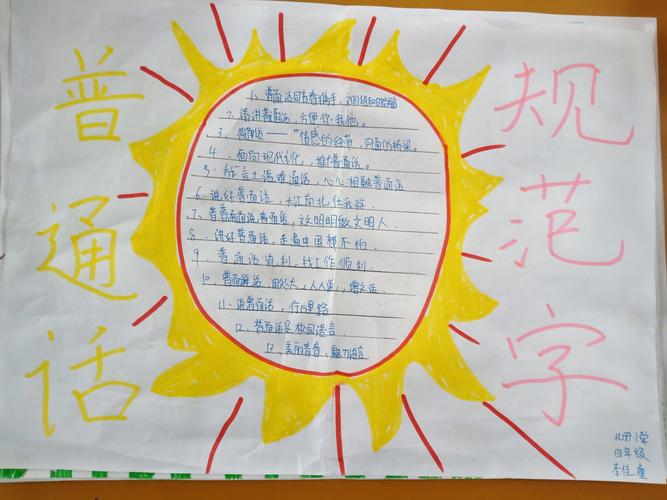 普通话
规范字
1、普通话同青春携手,文明语和时代
2、请讲普通话,方便你我他。
3、普通话——“情感的纽带,沟通的桥梁。
4、面向现代化,推普通话。
5、方言土语难通话,心心相融普通话
6、说好普通话,大江南北任我游
7、普普通通说普通话,文明明做文明人.
8、讲好普通话,走遍中国都不怕
9、普通话顺利,找工作顺利.
10、普通话,用处大,人人说,
11、说普通话,行万里路
12、普通话是校园语言
13、美丽青春、魅力语言
小学
四年级
李佳